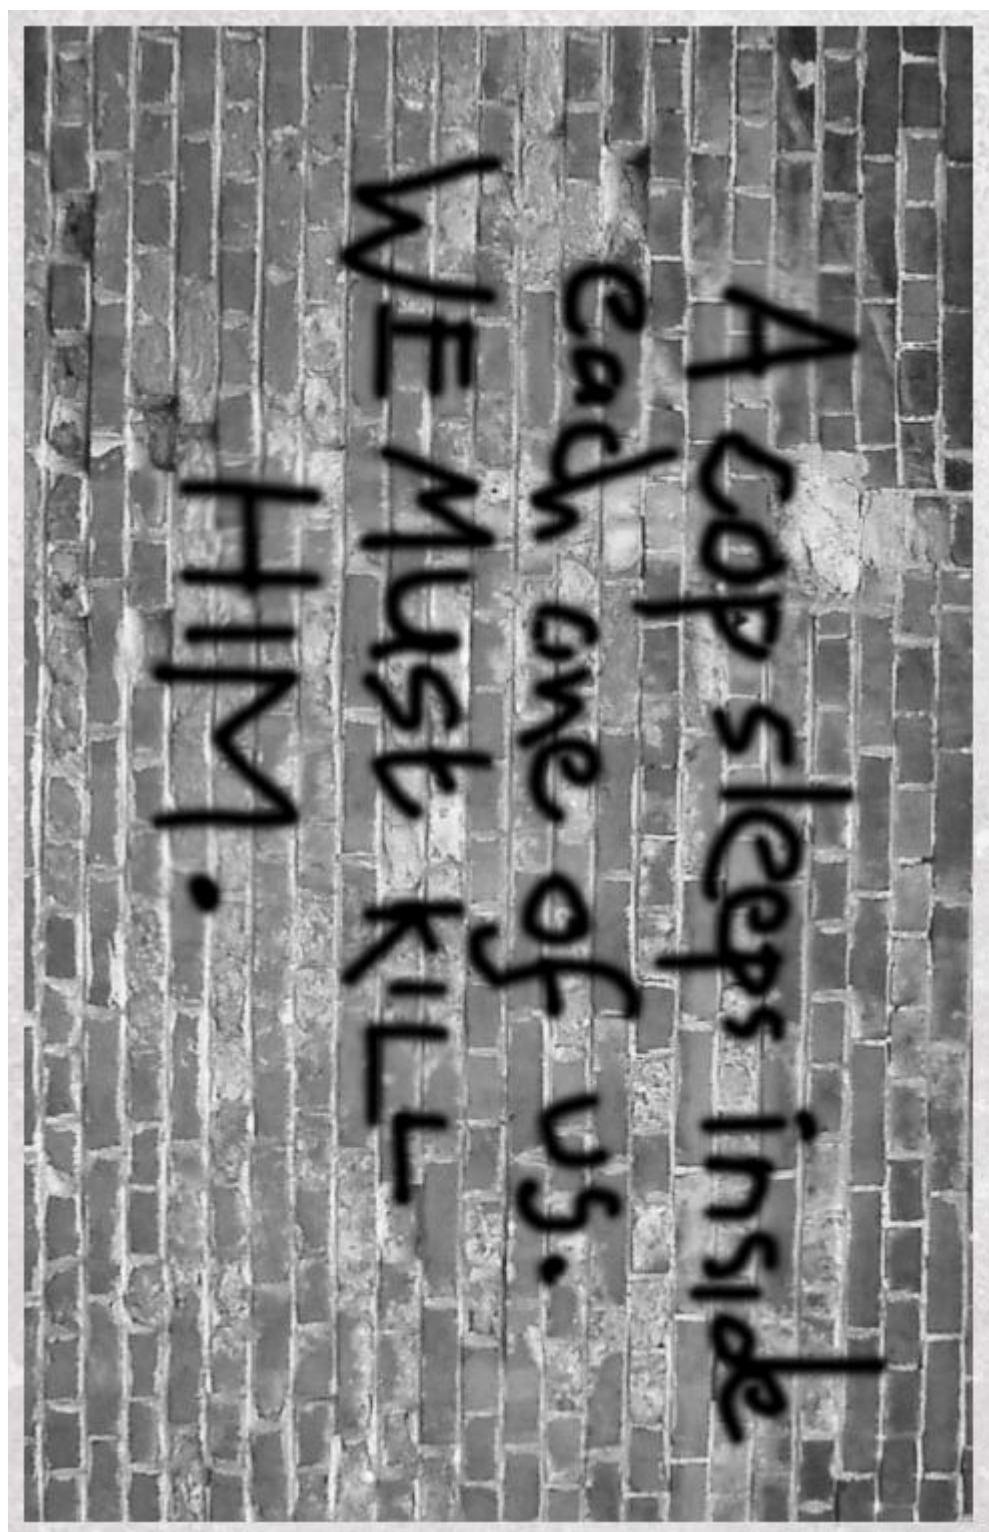 A cop sleeps inside
each one of us.
WE MUst KILL
HIM.